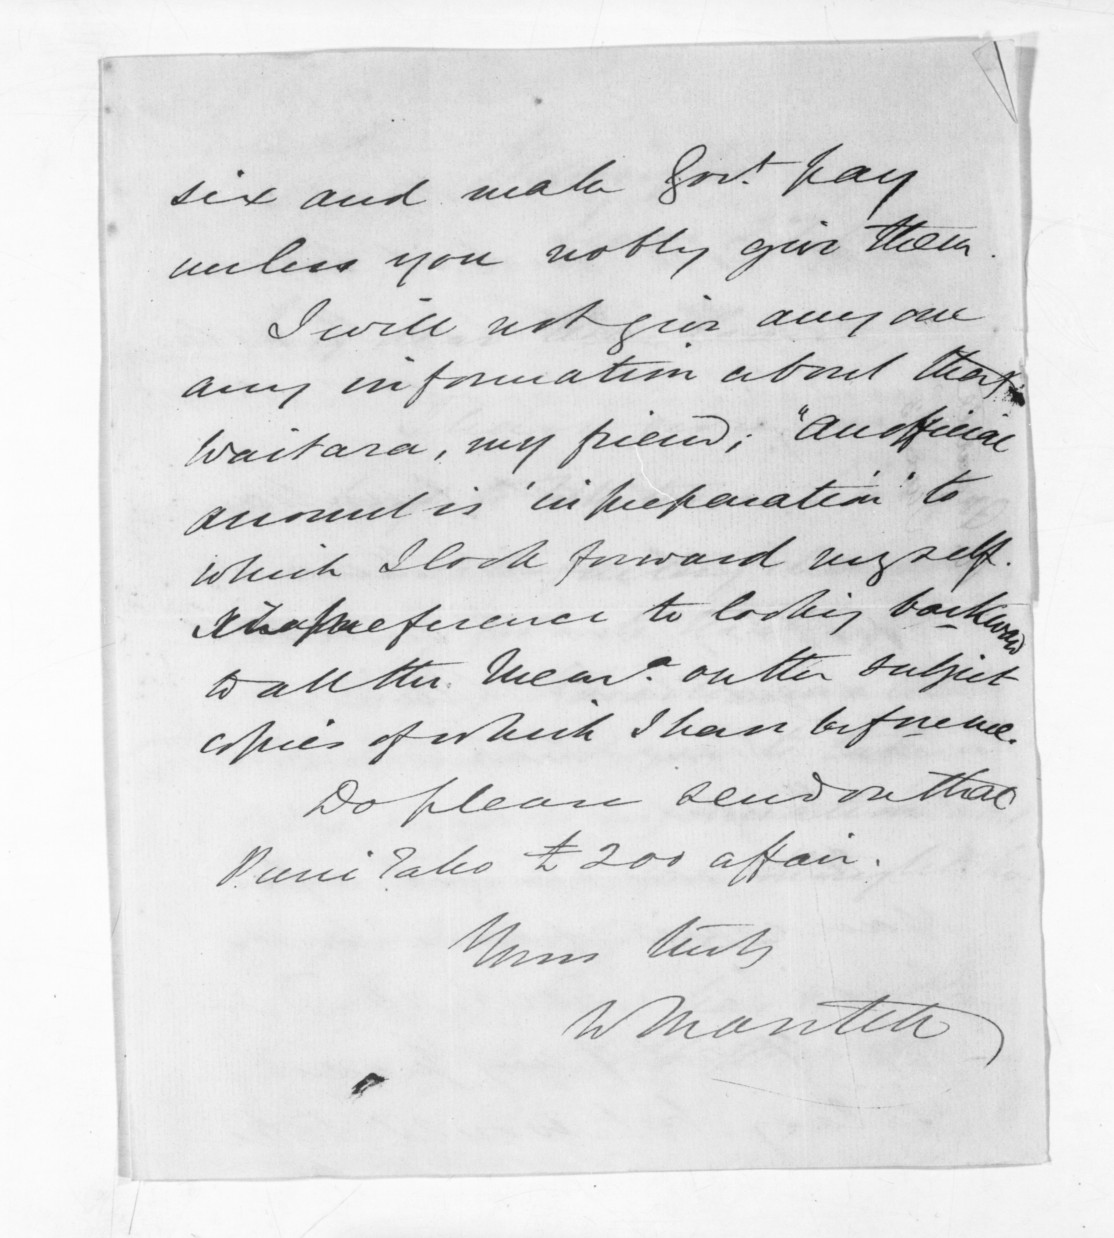 six and make Govt. pay
unless you nobly give them.
I will not give any one
any information about that
Waitara, my friend; "An official
account is 'in preparation' to
which I look forward myself.
preference to looking backward
to all the Mema. on the subject
copies of which I have before me.
Do please send on that
Puni £200 affair.
Yours truly
W Mantell